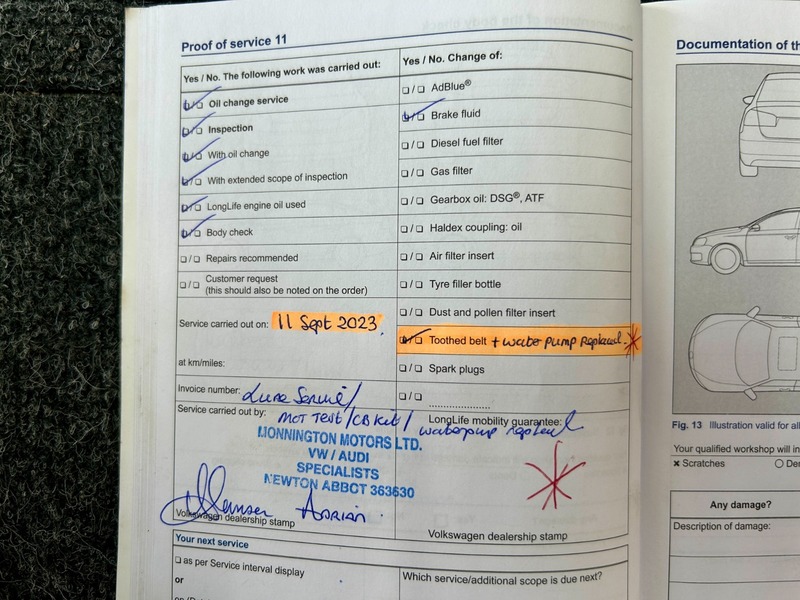 Proof of service 11
Yes / No. The following work was carried out:
Oil change service
Inspection
With oil change
With extended scope of inspection
LongLife engine oil used
Body check
Repairs recommended
Customer request
(this should also be noted on the order)
Service carried out on: 11 Sept 2023.
at km/miles:
Invoice number:
Service carried out by: MOT Test /
MONNINGTON MOTORS LTD.
VW / AUDI
SPECIALISTS
NEWTON ABBOT 363630
ADRIAN
Volkswagen dealership stamp
Yes / No. Change of:
AdBlue®
Brake fluid
Diesel fuel filter
Gas filter
Gearbox oil: DSG®, ATF
Haldex coupling: oil
Air filter insert
Tyre filler bottle
Dust and pollen filter insert
Toothed belt + water pump Replaced.
Spark plugs
LongLife mobility guarantee:
waterpump replaced
Volkswagen dealership stamp
Your next service
as per Service interval display
or
Which service/additional scope is due next?
Documentation of th
Fig. 13 Illustration valid for all
Your qualified workshop will in
Scratches
Any damage?
Description of damage: